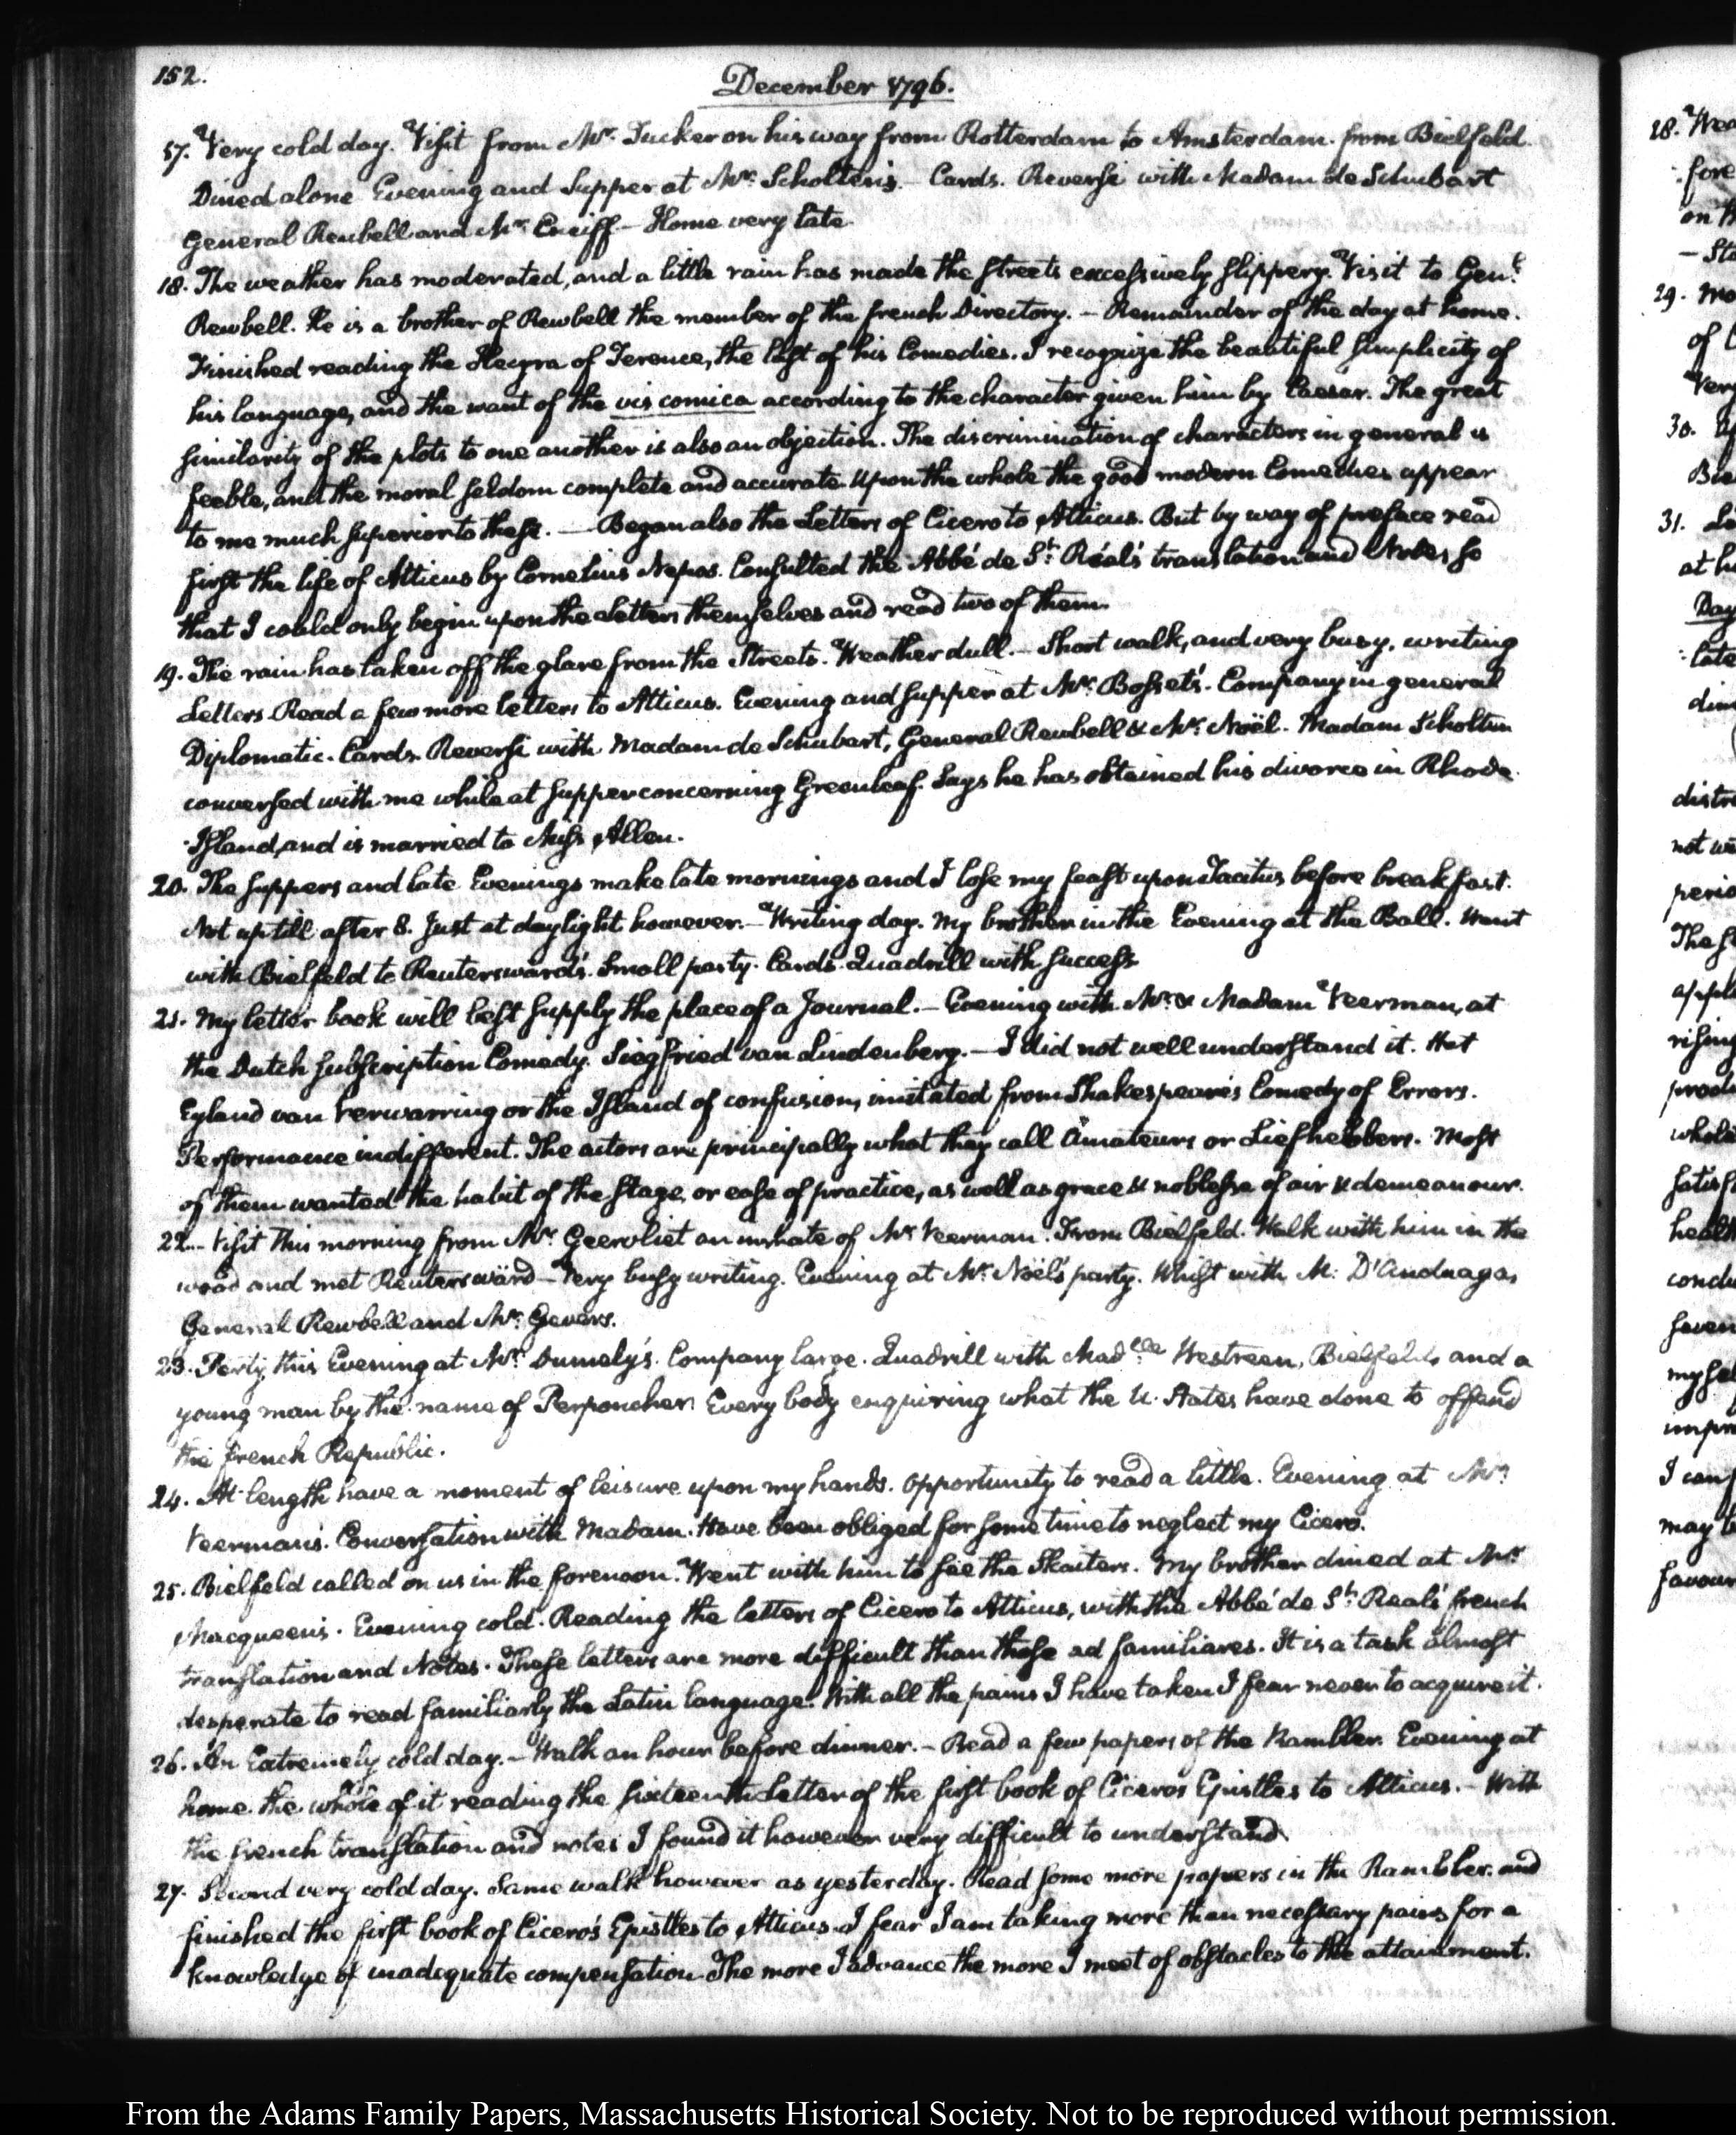 152.
December 1796.
17. Very cold day. Visit from Mr. Tucker on his way from Rotterdam to Amsterdam. from Bielfeld.
Dined alone Evening and Supper at Mr. Scholten's. — Cards. Reversi with Madam de Schubart
General Reubell and Mr. — Home very late.
18. The weather has moderated, and a little rain has made the streets excessively slippery. Visit to Genl.
Rewbell. He is a brother of Rewbell the member of the french Directory. — Remainder of the day at home.
Finished reading the Hecyra of Terence, the last of his Comedies. I recognize the beautiful simplicity of
his language, and the want of the vis comica according to the character given him by Caesar. The great
similarity of the plots to one another is also an objection. The discrimination of characters in general is
feeble, and the moral seldom complete and accurate. Upon the whole the good modern Comedies appear
to me much superior to these. — Began also the Letters of Cicero to Atticus. But by way of preface read
first the life of Atticus by Cornelius Nepos. Consulted the Abbé de St. Réal's translation and Notes so
that I could only begin upon the Letters themselves and read two of them.
19. The rain has taken off the glare from the Streets. Weather dull. — Short walk, and very busy, writing
Letters. Read a few more letters to Atticus. Evening and supper at Mr. Bosset's. Company in general
Diplomatic. Cards. Reversi with Madam de Schubart, General Reubell & Mr. Noël. Madam Scholten
conversed with me while at supper concerning Greenleaf. Says he has obtained his divorce in Rhode
Island, and is married to Miss Allen.
20. The suppers and late Evenings make late mornings and I lose my feast upon Tacitus before breakfast.
Not up till after 8. Just at daylight however. — Writing day. My brother in the Evening at the Ball. Went
with Bielfeld to Reuterswärd's. Small party. Cards. Quadrill with success
21. My letter book will best supply the place of a Journal. — Evening with Mr. & Madam Veerman, at
the Dutch subscription Comedy. Siegfried van Lindenberg. — I did not well understand it. Het
Eyland van Verwarring or the Island of confusion, imitated from Shakespeare's Comedy of Errors.
Performance indifferent. The actors are principally what they call Amateurs or Liefhebbers. Most
of them wanted the habit of the stage, or ease of practice, as well as grace & noblesse of air & demeanour.
22. — Visit this morning from Mr. Geervliet an inmate of Mr Veerman. From Bielfeld. Walk with him in the
wood and met Reuterswärd — Very busy writing. Evening at Mr. Noël's party. Whist with M: D'Anduaga,
General Rewbell and Mr. Gevers.
23. Party this Evening at Mr. Dumely's. Company large. Quadrill with Madelle Westreen, Bielfeld, and a
young man by the name of Perponcher. Every body enquiring what the U. States have done to offend
the french Republic.
24. At length have a moment of leisure upon my hands. Opportunity to read a little. Evening at Mr.
Veerman's. Conversation with Madam. Have been obliged for some time to neglect my Cicero.
25. Bielfeld called on us in the forenoon. Went with him to see the Skaiters. My brother dined at Mr.
Macqueen's. Evening cold. Reading the letters of Cicero to Atticus, with the Abbé de St. Real's french
translation and Notes. These letters are more difficult than those ad familiares. It is a task almost
desperate to read familiarly the Latin language. With all the pains I have taken I fear never to acquire it.
26. An Extremely cold day. — Walk an hour before dinner. — Read a few papers of the Rambler. Evening at
home. the whole of it reading the sixteenth Letter of the first book of Ciceros Epistles to Atticus. — With
the french translation and notes I found it however very difficult to understand.
27. Second very cold day. Same walk however as yesterday. Read some more papers in the Rambler. and
finished the first book of Cicero's Epistles to Atticus. I fear I am taking more than necessary pains for a
knowledge of inadequate compensation. The more I advance the more I meet of obstacles to the attainment.
From the Adams Family Papers, Massachusetts Historical Society. Not to be reproduced without permission.